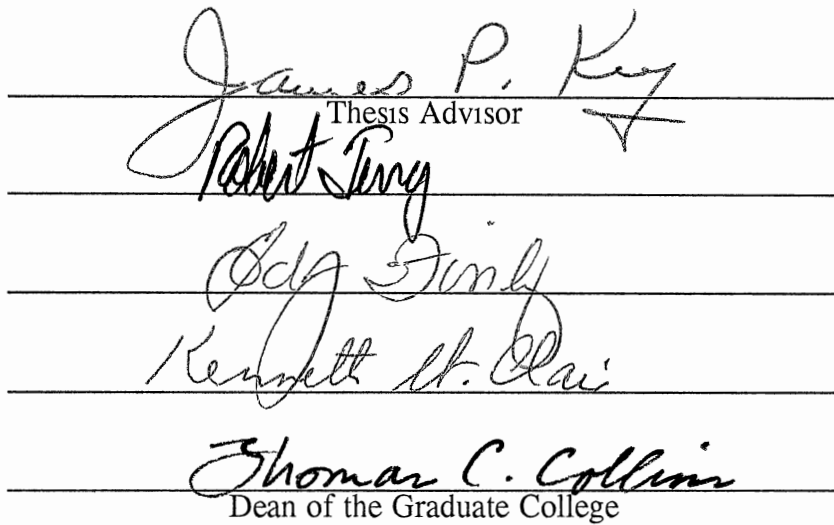 James P. Key
Thesis Advisor
Robert Terry
Kenneth St. Clair
Thomas C. Collins
Dean of the Graduate College